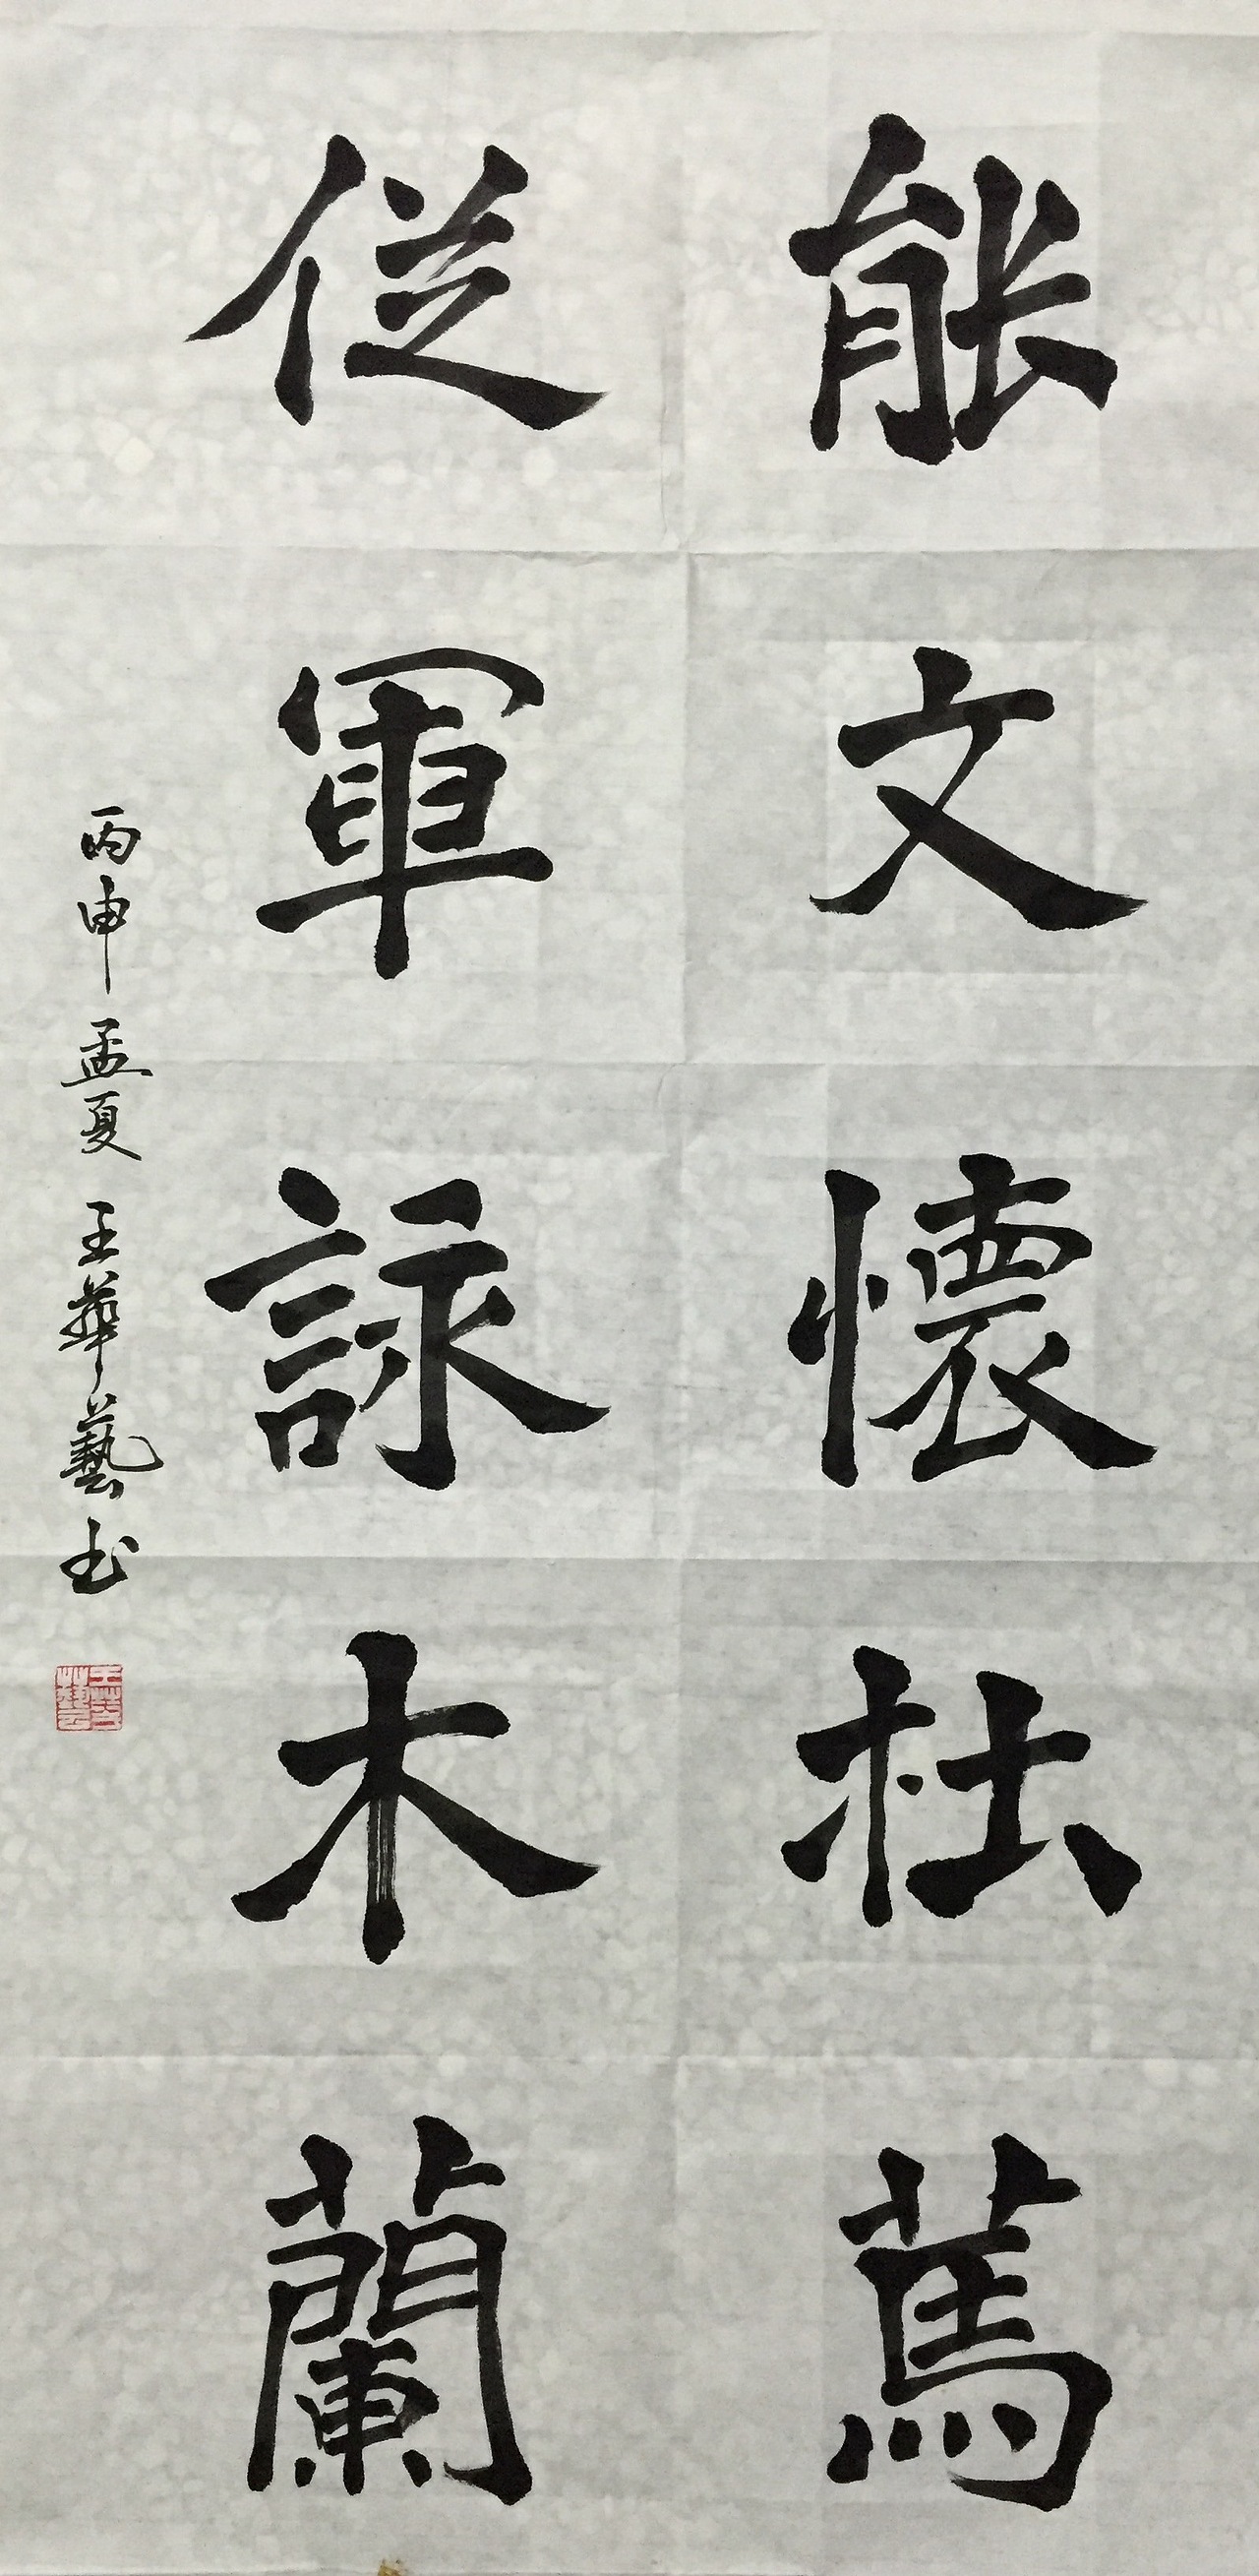 能文懷杜篤
從軍詠木蘭
丙申孟夏王華藝书